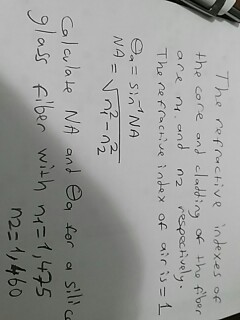 The refractive indexes of
the core and cladding of the fiber
are n1. and n2 respectively.
The refractive index of air is = 1
θa = sin⁻¹ NA
NA = √n1² - n2²
Calculate NA and θa for a silica
glass fiber with n1 = 1,475
n2 = 1,460